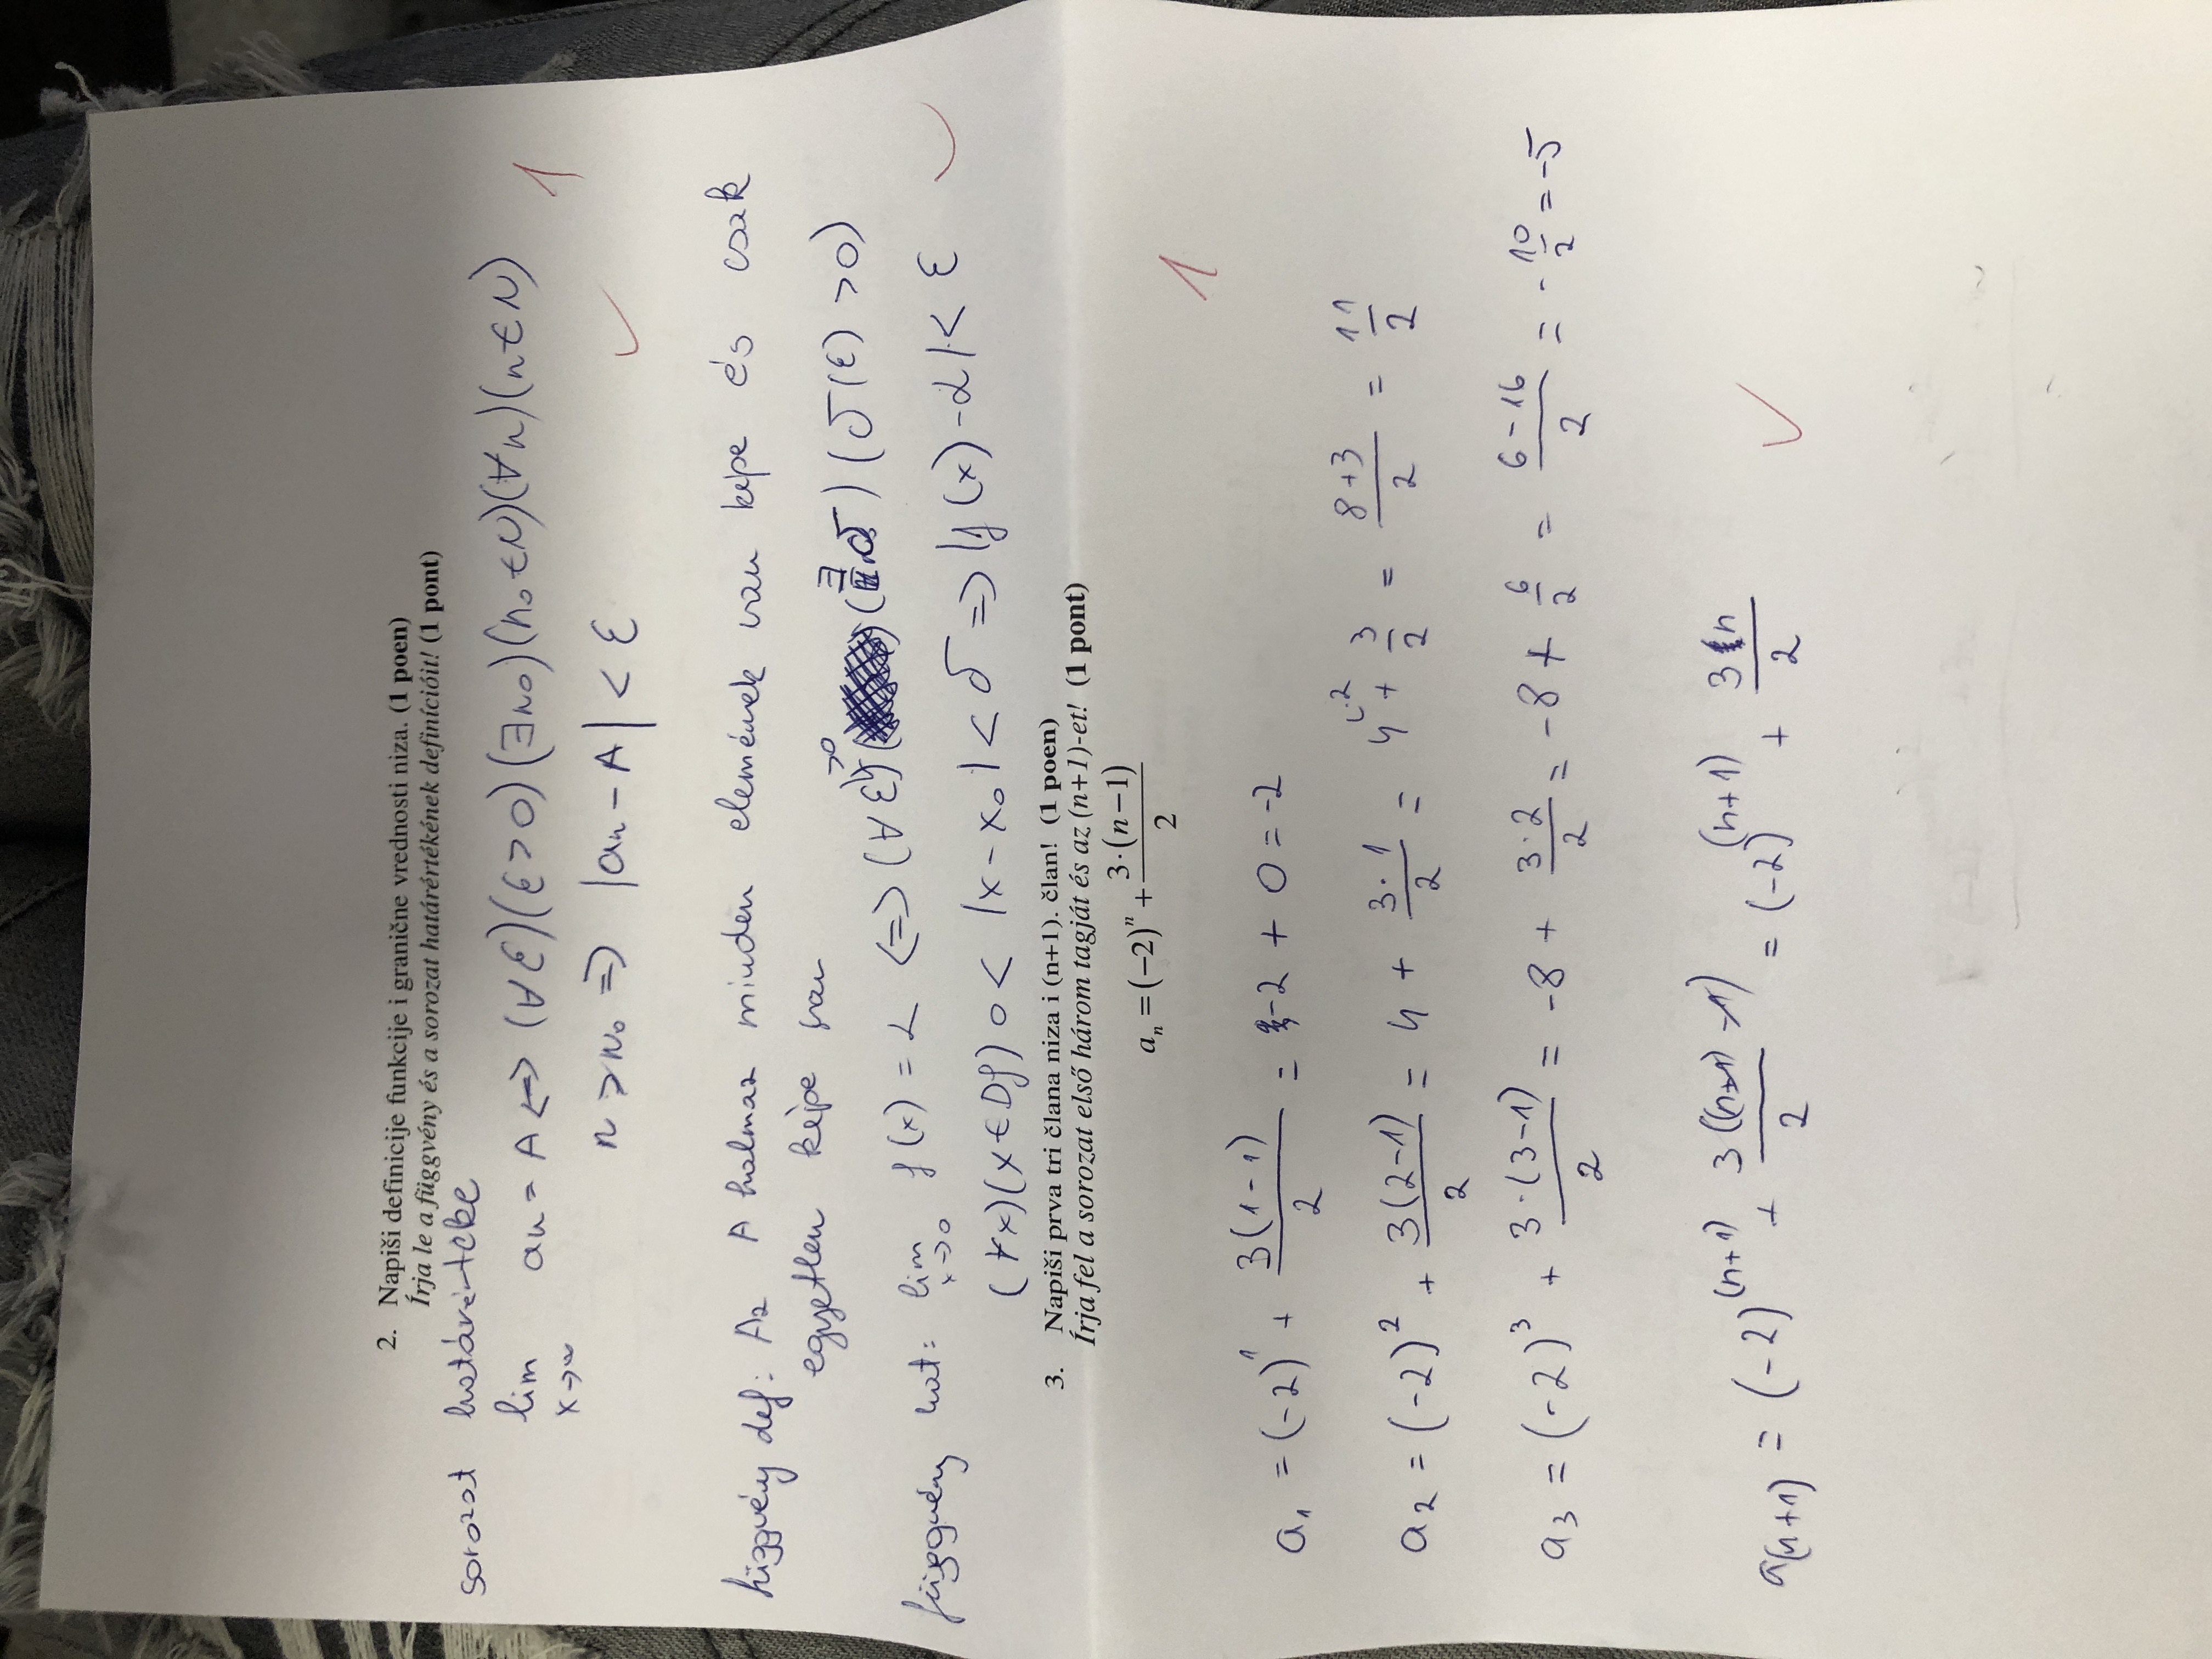 2. Napiši definicije funkcije i granične vrednosti niza. (1 poen)
Írja le a függvény és a sorozat határértékének definícióit! (1 pont)
sorozat határértéke
lim aₙ = A <=> (∀ε)(ε>0)(∃n₀)(n₀∈N)(∀n)(n∈N)
x→∞
1
n>n₀ => |aₙ-A| < ε
✓
függvény def: Az A halmaz minden elemének van képe és csak
egyetlen képe van
függvény hat: lim f(x) = L <=> (∀ε)>0 (∃δ) (δ(ε) >0)
x→0
(∀x)(x∈Df) 0< |x-x₀|<δ => |f(x)-L|< ε
✓
3. Napiši prva tri člana niza i (n+1). član! (1 poen)
Írja fel a sorozat első három tagját és az (n+1)-et! (1 pont)
aₙ = (−2)ⁿ + 3·(n−1)/2
1
a₁ = (-2)¹ + 3(1-1)/2 = -2 + 0 = -2
a₂ = (-2)² + 3(2-1)/2 = 4 + 3·1/2 = 4 + 3/2 = 8+3/2 = 11/2
a₃ = (-2)³ + 3·(3-1)/2 = -8 + 3·2/2 = -8 + 6/2 = 6-16/2 = -10/2 = -5
a(n+1) = (-2)^(n+1) + 3((n+1)-1)/2 = (-2)^(n+1) + 3n/2
✓